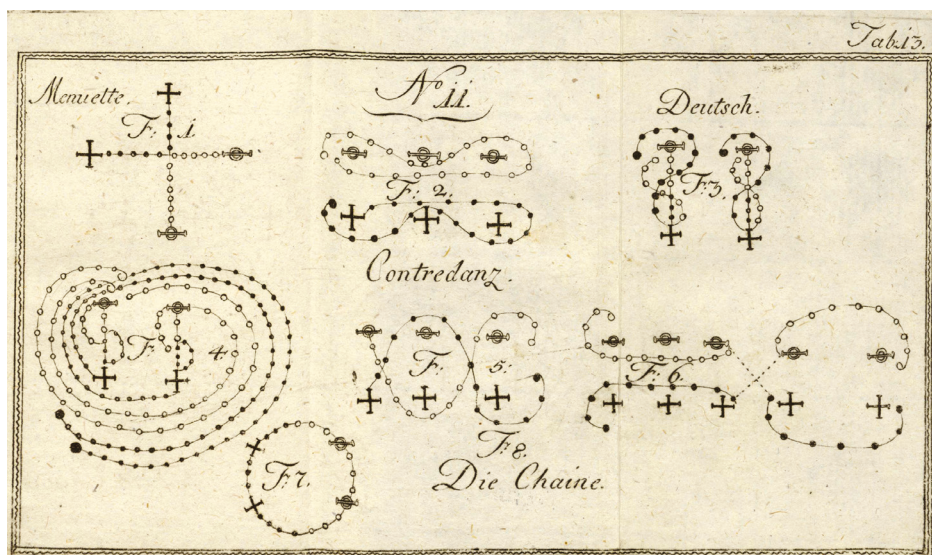 Tab. 13.
Menuette.
No 11.
Deutsch.
F: 1.
F: 2.
F: 3.
Contredanz.
F: 4.
F: 5:
F: 6.
F: 7.
F: 8.
Die Chaine.